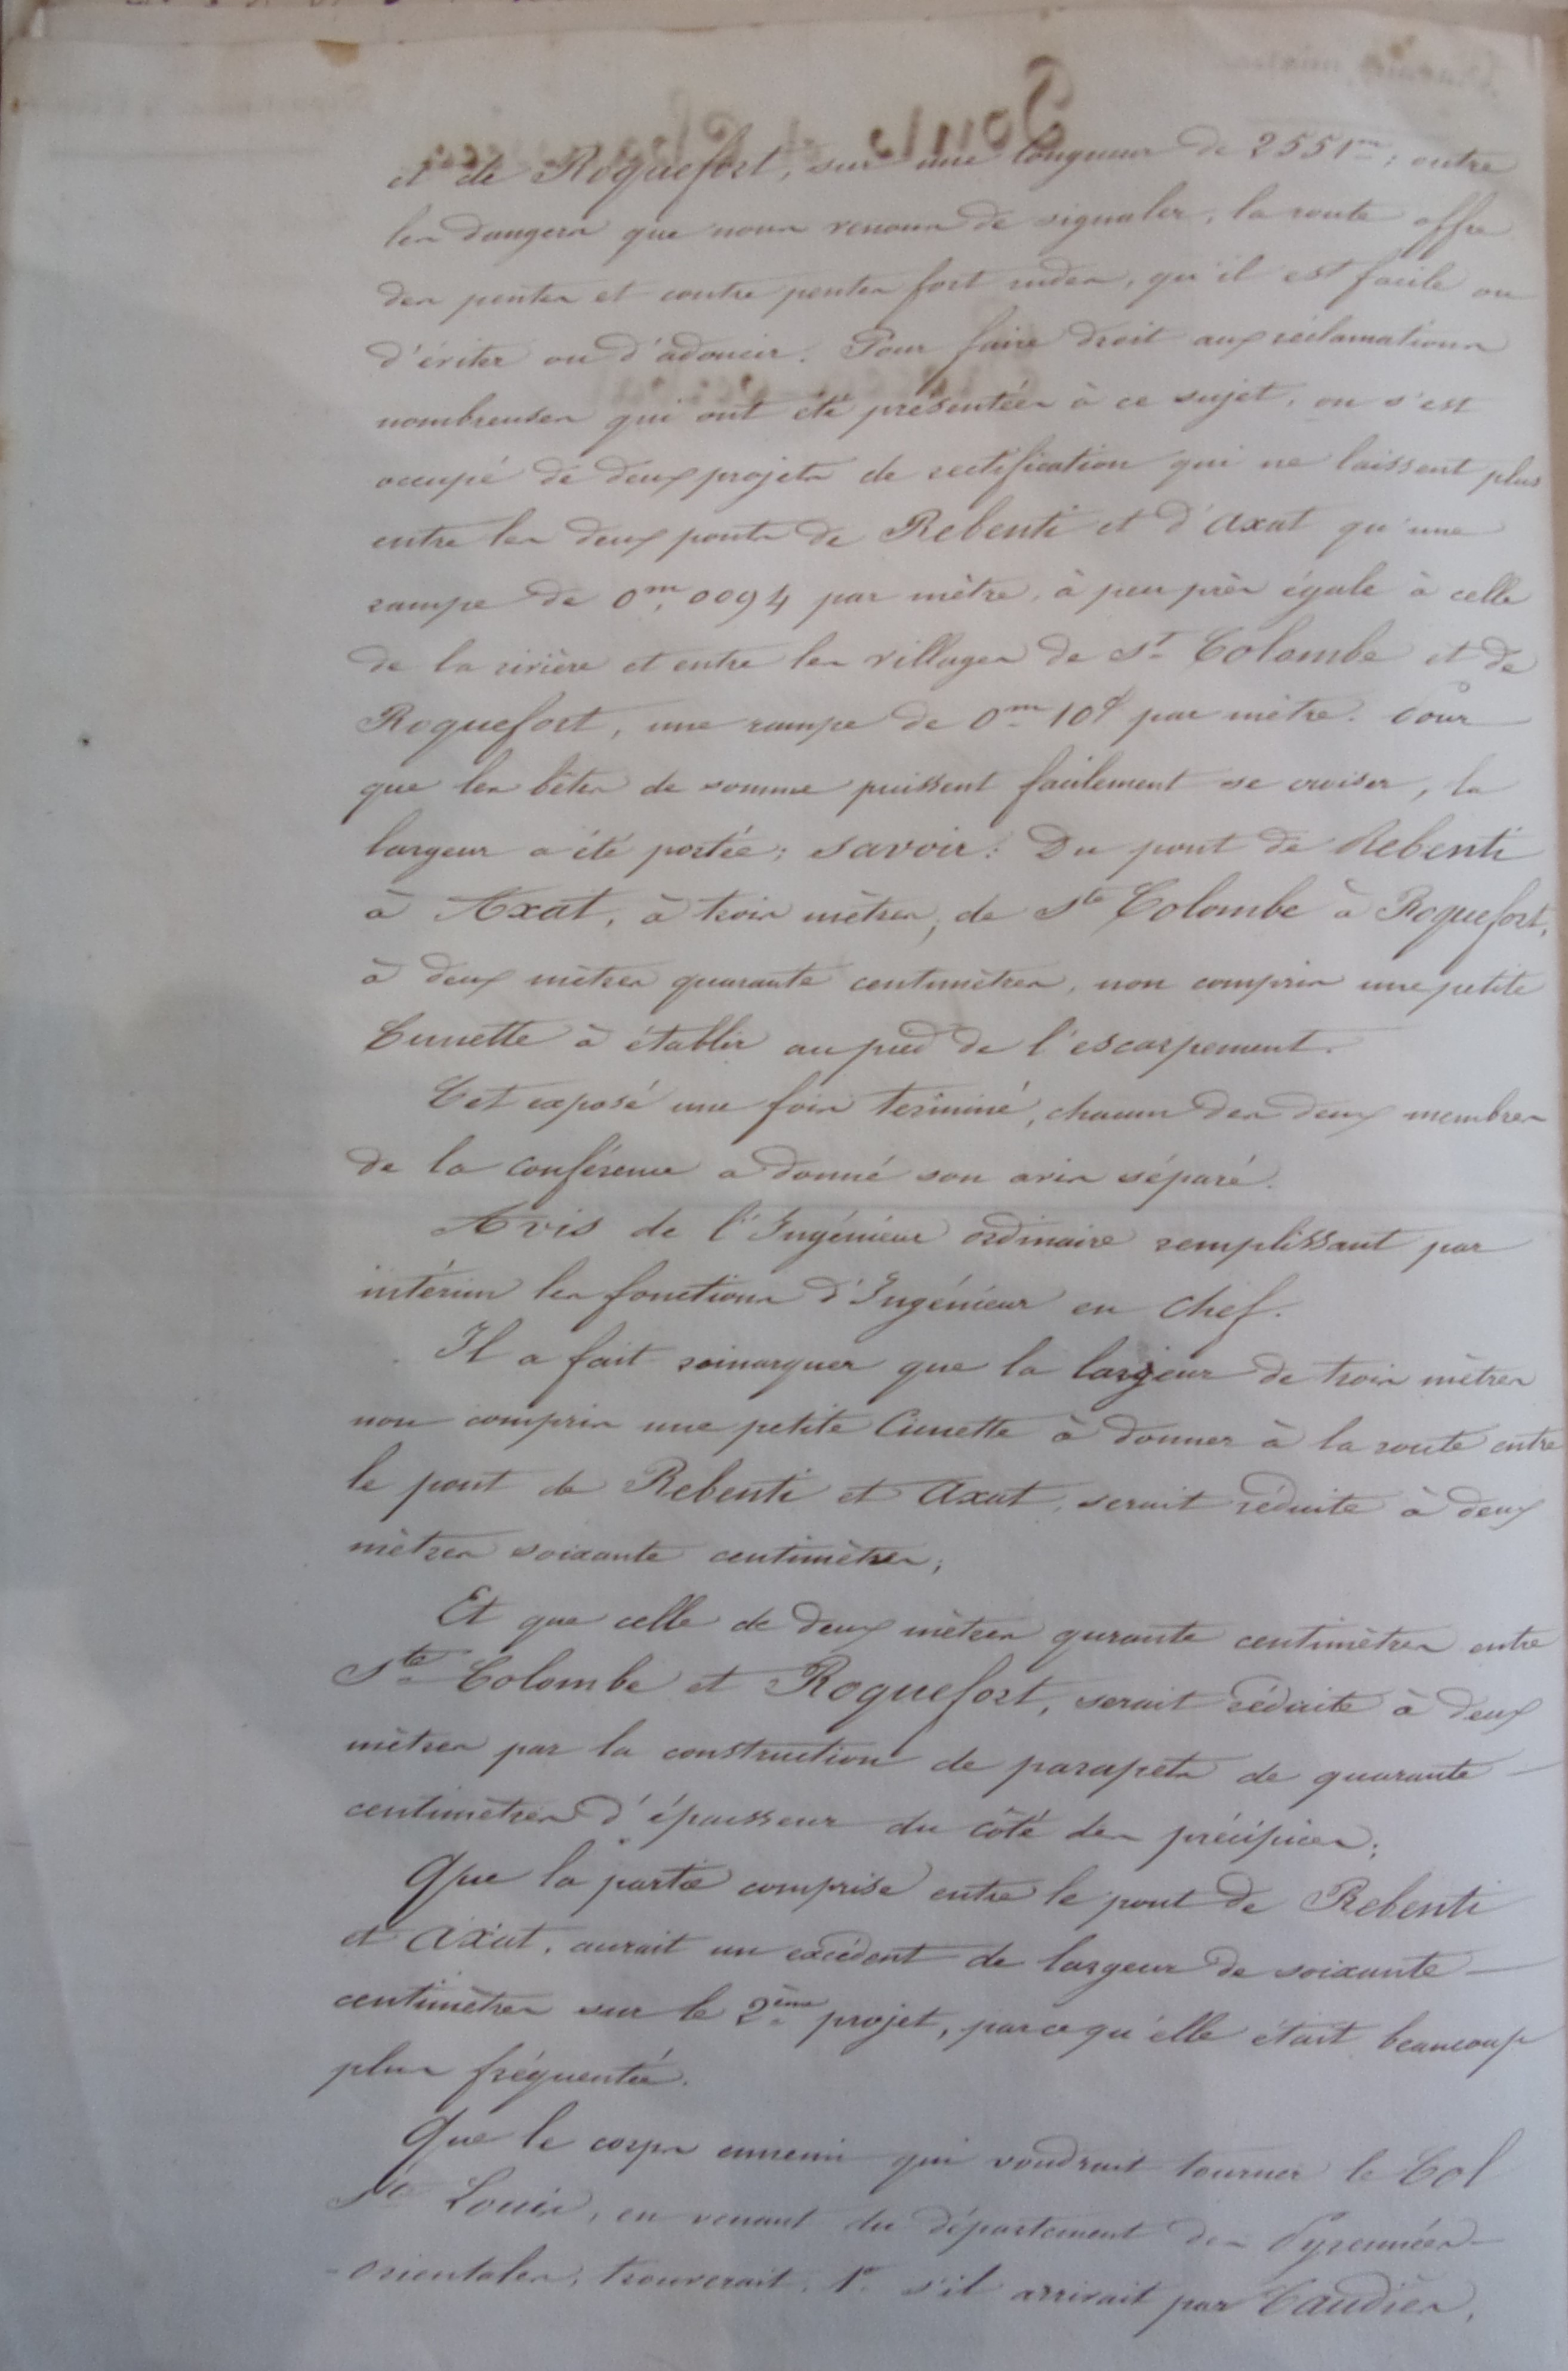 et de Roquefort, sur une longueur de 2551m; outre
les dangers que nous venons de signaler, la route offre
des pentes et contre pentes fort rudes, qu'il est facile ou
d'éviter ou d'adoucir. Pour faire droit aux réclamations
nombreuses qui ont été présentées à ce sujet, on s'est
occupé de deux projets de rectification qui ne laissent plus
entre les deux ponts de Rebenti et d'Axat qu'une
rampe de 0m,0094 par mètre, à peu près égale à celle
de la rivière et entre les villages de St Colombe et de
Roquefort, une rampe de 0m 10c par mètre. Pour
que les bêtes de somme puissent facilement se croiser, la
largeur a été portée; savoir: Du pont de Rebenti
à Axat, à trois mètres; de Ste Colombe à Roquefort,
à deux mètres quarante centimètres, non compris une petite
Cunette à établir au pied de l'escarpement.
Cet exposé une fois terminé, chacun des deux membres
de la conférence a donné son avis séparé.
Avis de l'Ingénieur ordinaire remplissant par
intérim les fonctions d'Ingénieur en chef.
Il a fait remarquer que la largeur de trois mètres
non compris une petite Cunette à donner à la route entre
le pont de Rebenti et Axat, serait réduite à deux
mètres soixante centimètres;
Et que celle de deux mètres qurante centimètres entre
Ste Colombe et Roquefort, serait réduite à deux
mètres par la construction de parapets de quarante
centimètres d'épaisseur du côté des précipices;
Que la partie comprise entre le pont de Rebenti
et Axat, aurait un excédent de largeur de soixante
centimètres sur le 2ème projet, parcequ'elle était beaucoup
plus fréquentée.
Que le corps ennemi qui voudrait tourner le Col
St Louis, en venant du département des Pyrennées-
-orientales, trouverait, 1° s'il arrivait par Caudiès,